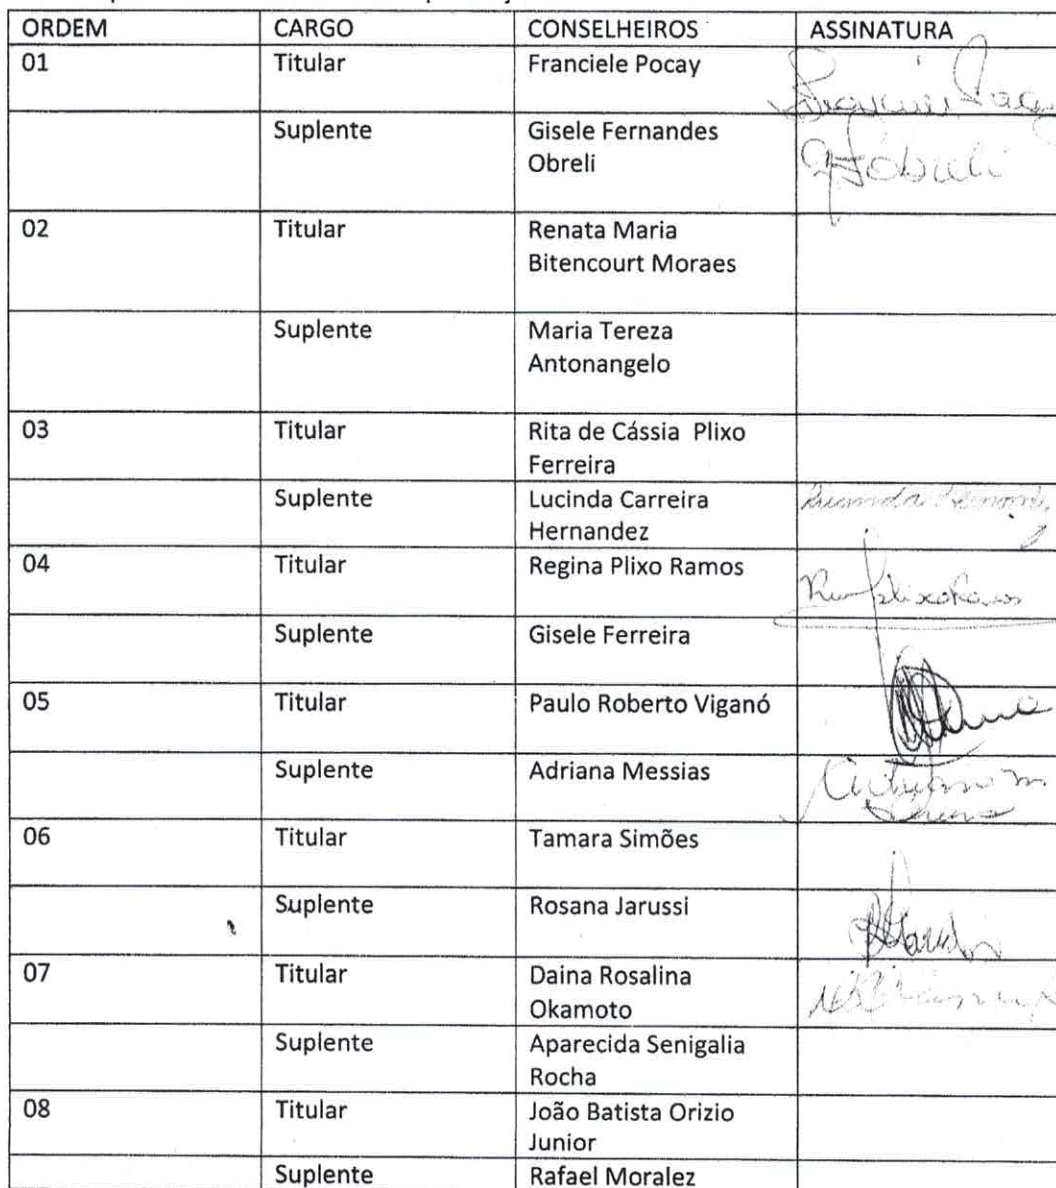 ORDEM CARGO CONSELHEIROS ASSINATURA
01 Titular Franciele Pocay
Suplente Gisele Fernandes
Obreli
GFObreli
02 Titular Renata Maria
Bitencourt Moraes
Suplente Maria Tereza
Antonangelo
03 Titular Rita de Cássia Plixo
Ferreira
Suplente Lucinda Carreira
Hernandez
04 Titular Regina Plixo Ramos
Suplente Gisele Ferreira
05 Titular Paulo Roberto Viganó
Suplente Adriana Messias
06 Titular Tamara Simões
Suplente Rosana Jarussi
07 Titular Daina Rosalina
Okamoto
Suplente Aparecida Senigalia
Rocha
08 Titular João Batista Orizio
Junior
Suplente Rafael Moralez